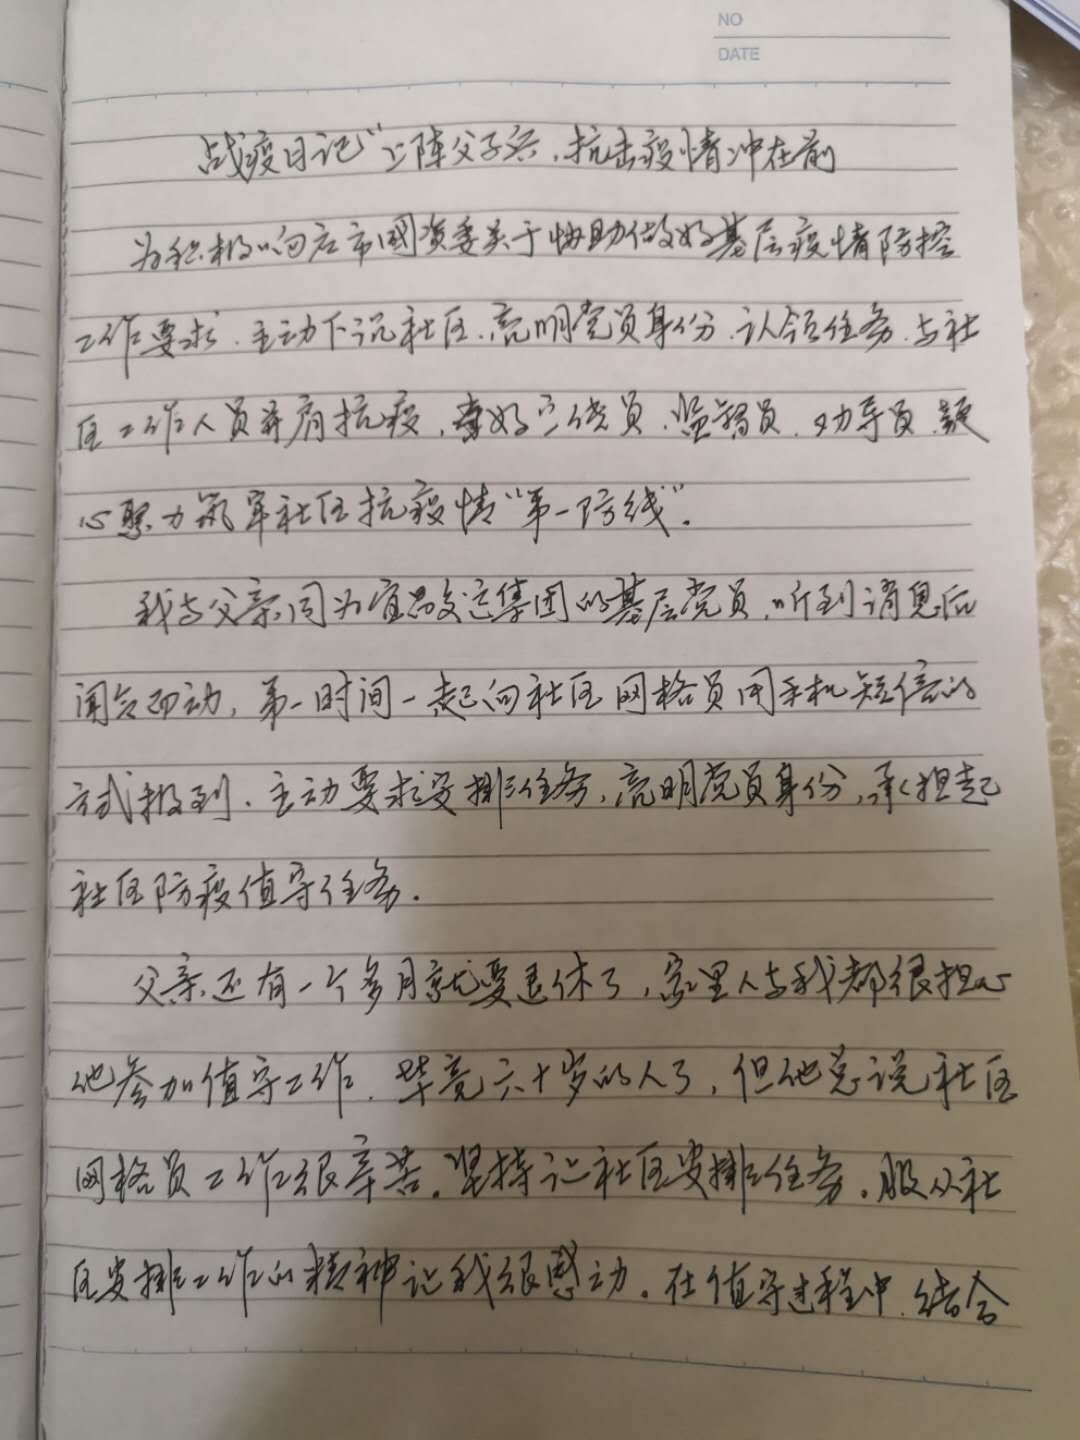 NO
DATE
战疫日记“上阵父子兵,抗击疫情冲在前
为积极响应市国资委关于协助做好基层疫情防控
工作要求,主动下沉社区,亮明党员身份,认领任务,与社
区工作人员并肩抗疫,当好宣传员,监督员,劝导员,凝
心聚力筑牢社区抗疫情“第一防线”.
我与父亲同为宜昌交运集团的基层党员,听到消息后
闻令而动,第一时间一起向社区网格员用手机短信的
方式报到,主动要求安排任务,亮明党员身份,承担起
社区防疫值守任务.
父亲还有一个多月就要退休了,家里人与我都很担心
他参加值守工作,毕竟六十岁的人了,但他总说社区
网格员工作很辛苦。坚持让社区安排任务,服从社
区安排工作的精神让我很感动。在值守过程中,结合